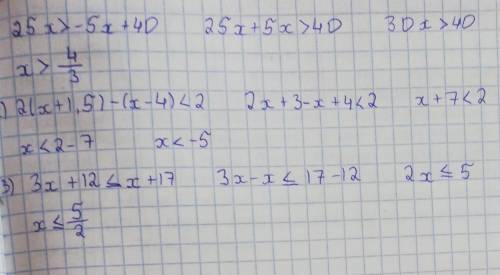 25x>-5x+40 25x+5x>40 30x>40
x>4/3
) 2(x+1,5)-(x-4)<2 2x+3-x+4<2 x+7<2
x<2-7 x<-5
3) 3x+12≤x+17 3x-x≤17-12 2x≤5
x≤5/2